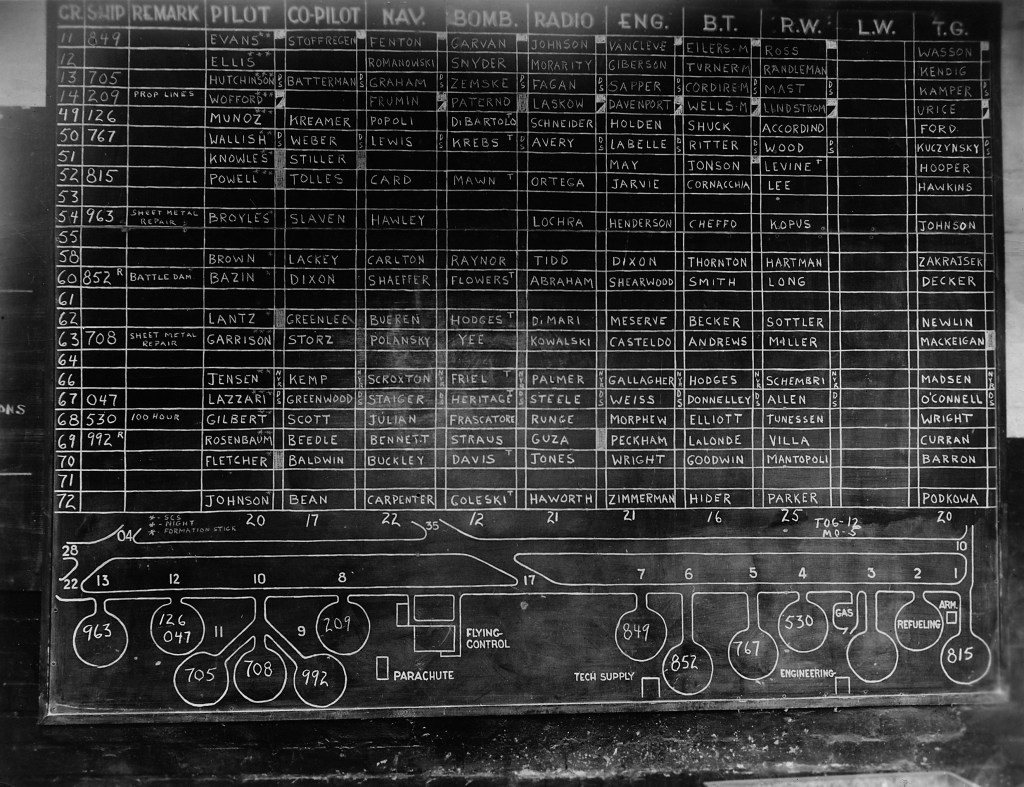 CR. SHIP REMARK PILOT CO-PILOT NAV. BOMB. RADIO ENG. B.T. R.W. L.W. T.G.
11 849 EVANS** STOFFREGEN FENTON GARVAN JOHNSON VANCLEVE EILERS-M ROSS WASSON
12 ELLIS*** ROMANOWSKI SNYDER MORARITY GIBERSON TURNER-M RANDLEMAN KENDIG
13 705 HUTCHINSON DS BATTERMAN DS GRAHAM DS ZEMSKE DS FAGAN DS SAPPER DS CORDIREM DS MAST DS KAMPER DS
14 209 PROP LINES WOFFORD** FRUMIN PATERNO LASKOW DAVENPORT WELLS-M LINDSTROM URICE
49 126 MUNOZ** KREAMER POPOLI DIBARTOLO SCHNEIDER HOLDEN SHUCK ACCORDINO FORD
50 767 WALLISH** DS WEBER DS LEWIS DS KREBS T DS AVERY DS LABELLE DS RITTER DS WOOD DS KUCZYNSKY DS
51 KNOWLES* STILLER MAY JONSON LEVINE T HOOPER
52 815 POWELL** TOLLES CARD MAWN T ORTEGA JARVIE CORNACCHIA LEE HAWKINS
53
54 963 SHEET METAL REPAIR BROYLES* SLAVEN HAWLEY LOCHRA HENDERSON CHEFFO KOPUS JOHNSON
55
58 BROWN* LACKEY CARLTON RAYNOR TIDD DIXON THORNTON HARTMAN ZAKRAJSEK
60 852 R BATTLE DAM BAZIN* DIXON SHAEFFER FLOWERS T ABRAHAM SHEARWOOD SMITH LONG DECKER
61
62 LANTZ* GREENLEE BUEREN HODGES T DiMARI MESERVE BECKER SOTTLER NEWLIN
63 708 SHEET METAL REPAIR GARRISON STORZ POLANSKY YEE KOWALSKI CASTELDO ANDREWS MILLER MACKEIGAN
64
66 JENSEN** KEMP NYR SCROXTON NYR FRIEL T NYR PALMER NYR GALLAGHER NYR HODGES NYR SCHEMBRI NYR MADSEN NYR
67 047 LAZZARI** DS GREENWOOD DS STAIGER DS HERITAGE DS STEELE DS WEISS DS DONNELLEY DS ALLEN DS O'CONNELL DS
68 530 100 HOUR GILBERT* SCOTT JULIAN FRASCATORE RUNGE MORPHEW ELLIOTT TUNESSEN WRIGHT
69 992 R ROSENBAUM BEEDLE BENNETT STRAUS GUZA PECKHAM LALONDE VILLA CURRAN
70 FLETCHER* BALDWIN BUCKLEY DAVIS T JONES WRIGHT GOODWIN MANTOPOLI BARRON
71
72 JOHNSON BEAN CARPENTER GOLESKI T HAWORTH ZIMMERMAN HIDER PARKER PODKOWA
*- SCS
*- NIGHT
*- FORMATION STICK
20 17 22 12 21 21 16 25 TOG-12 20
MO-5
04 35
28 10
22 13 12 10 8 17 7 6 5 4 3 2 1
963 126 047 11 9 209 849 530 GAS REFUELING ARM.
705 708 992 FLYING CONTROL 852 767 815
PARACHUTE TECH SUPPLY ENGINEERING